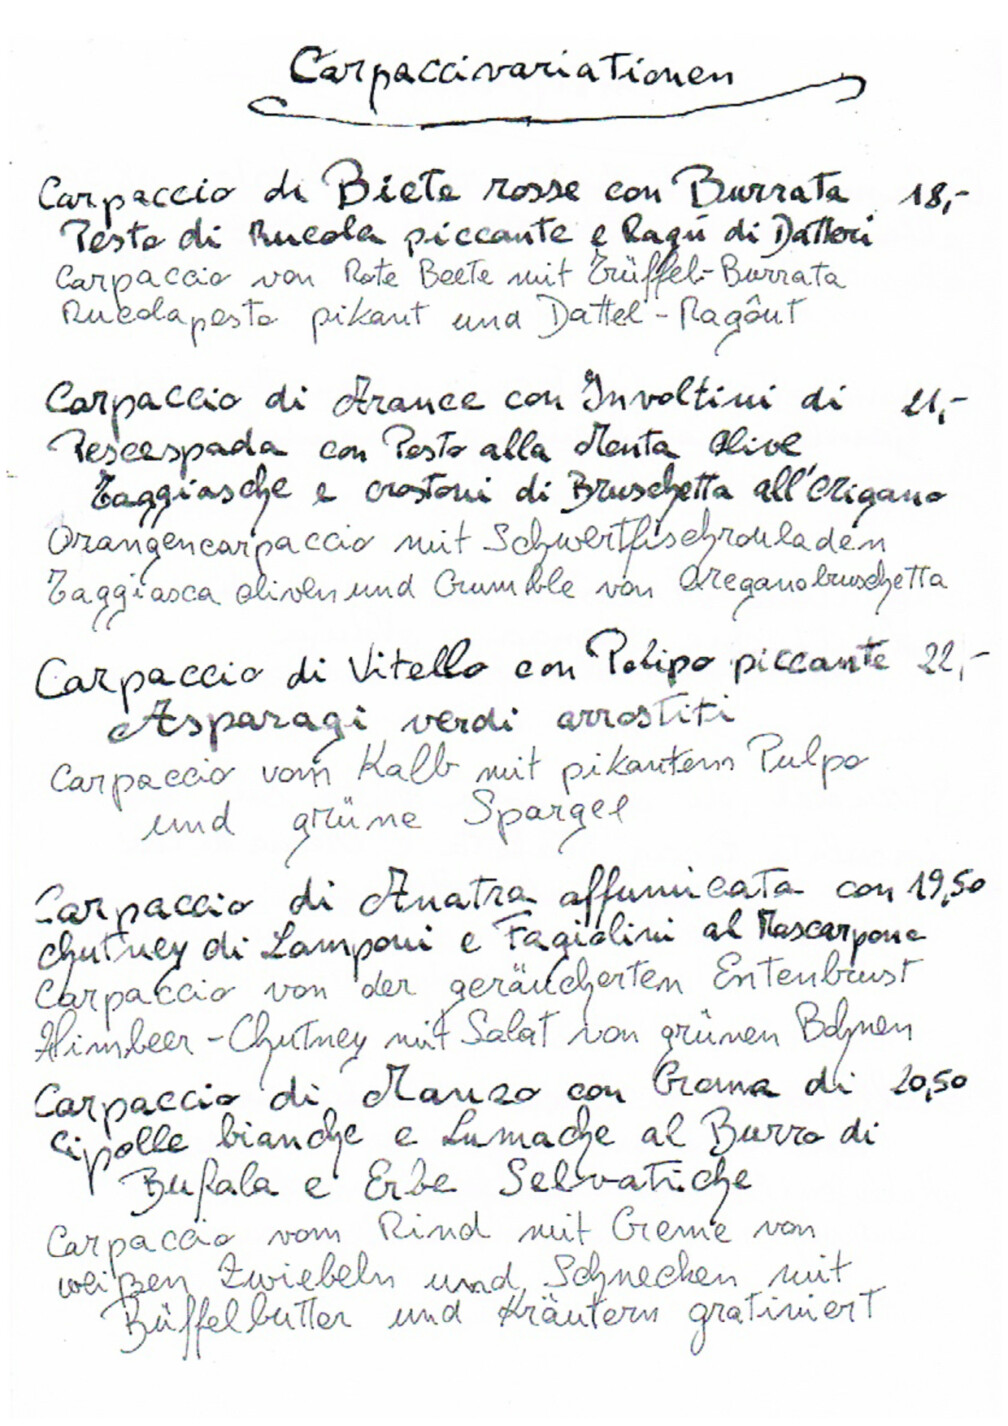 Carpaccivariationen
Carpaccio di Biete rosse con Burrata 18,-
Pesto di Rucola piccante e Ragú di Datteri
Carpaccio von Rote Beete mit Trüffel-Burrata
Rucolapesto pikant und Dattel-Ragôut
Carpaccio di Arance con Involtini di 21,-
Pescespada con Pesto alla Menta Olive
Taggiasche e crostoni di Bruschetta all'Origano
Orangencarpaccio mit Schwertfischrouladen
Taggiasca oliven und Crumble von Oreganobruschetta
Carpaccio di Vitello con Polipo piccante 22,-
Asparagi verdi arrostiti
Carpaccio vom Kalb mit pikantem Pulpo
und grüne Spargel
Carpaccio di Anatra affumicata con 19,50
chutney di Lamponi e Fagiolini al Mascarpone
Carpaccio von der geräucherten Entenbrust
Himbeer-Chutney mit Salat von grünen Bohnen
Carpaccio di Manzo con Crema di 20,50
Cipolle bianche e Lumache al Burro di
Bufala e Erbe Selvatiche
Carpaccio vom Rind mit Creme von
weißen Zwiebeln und Schnecken mit
Büffelbutter und Kräutern gratiniert